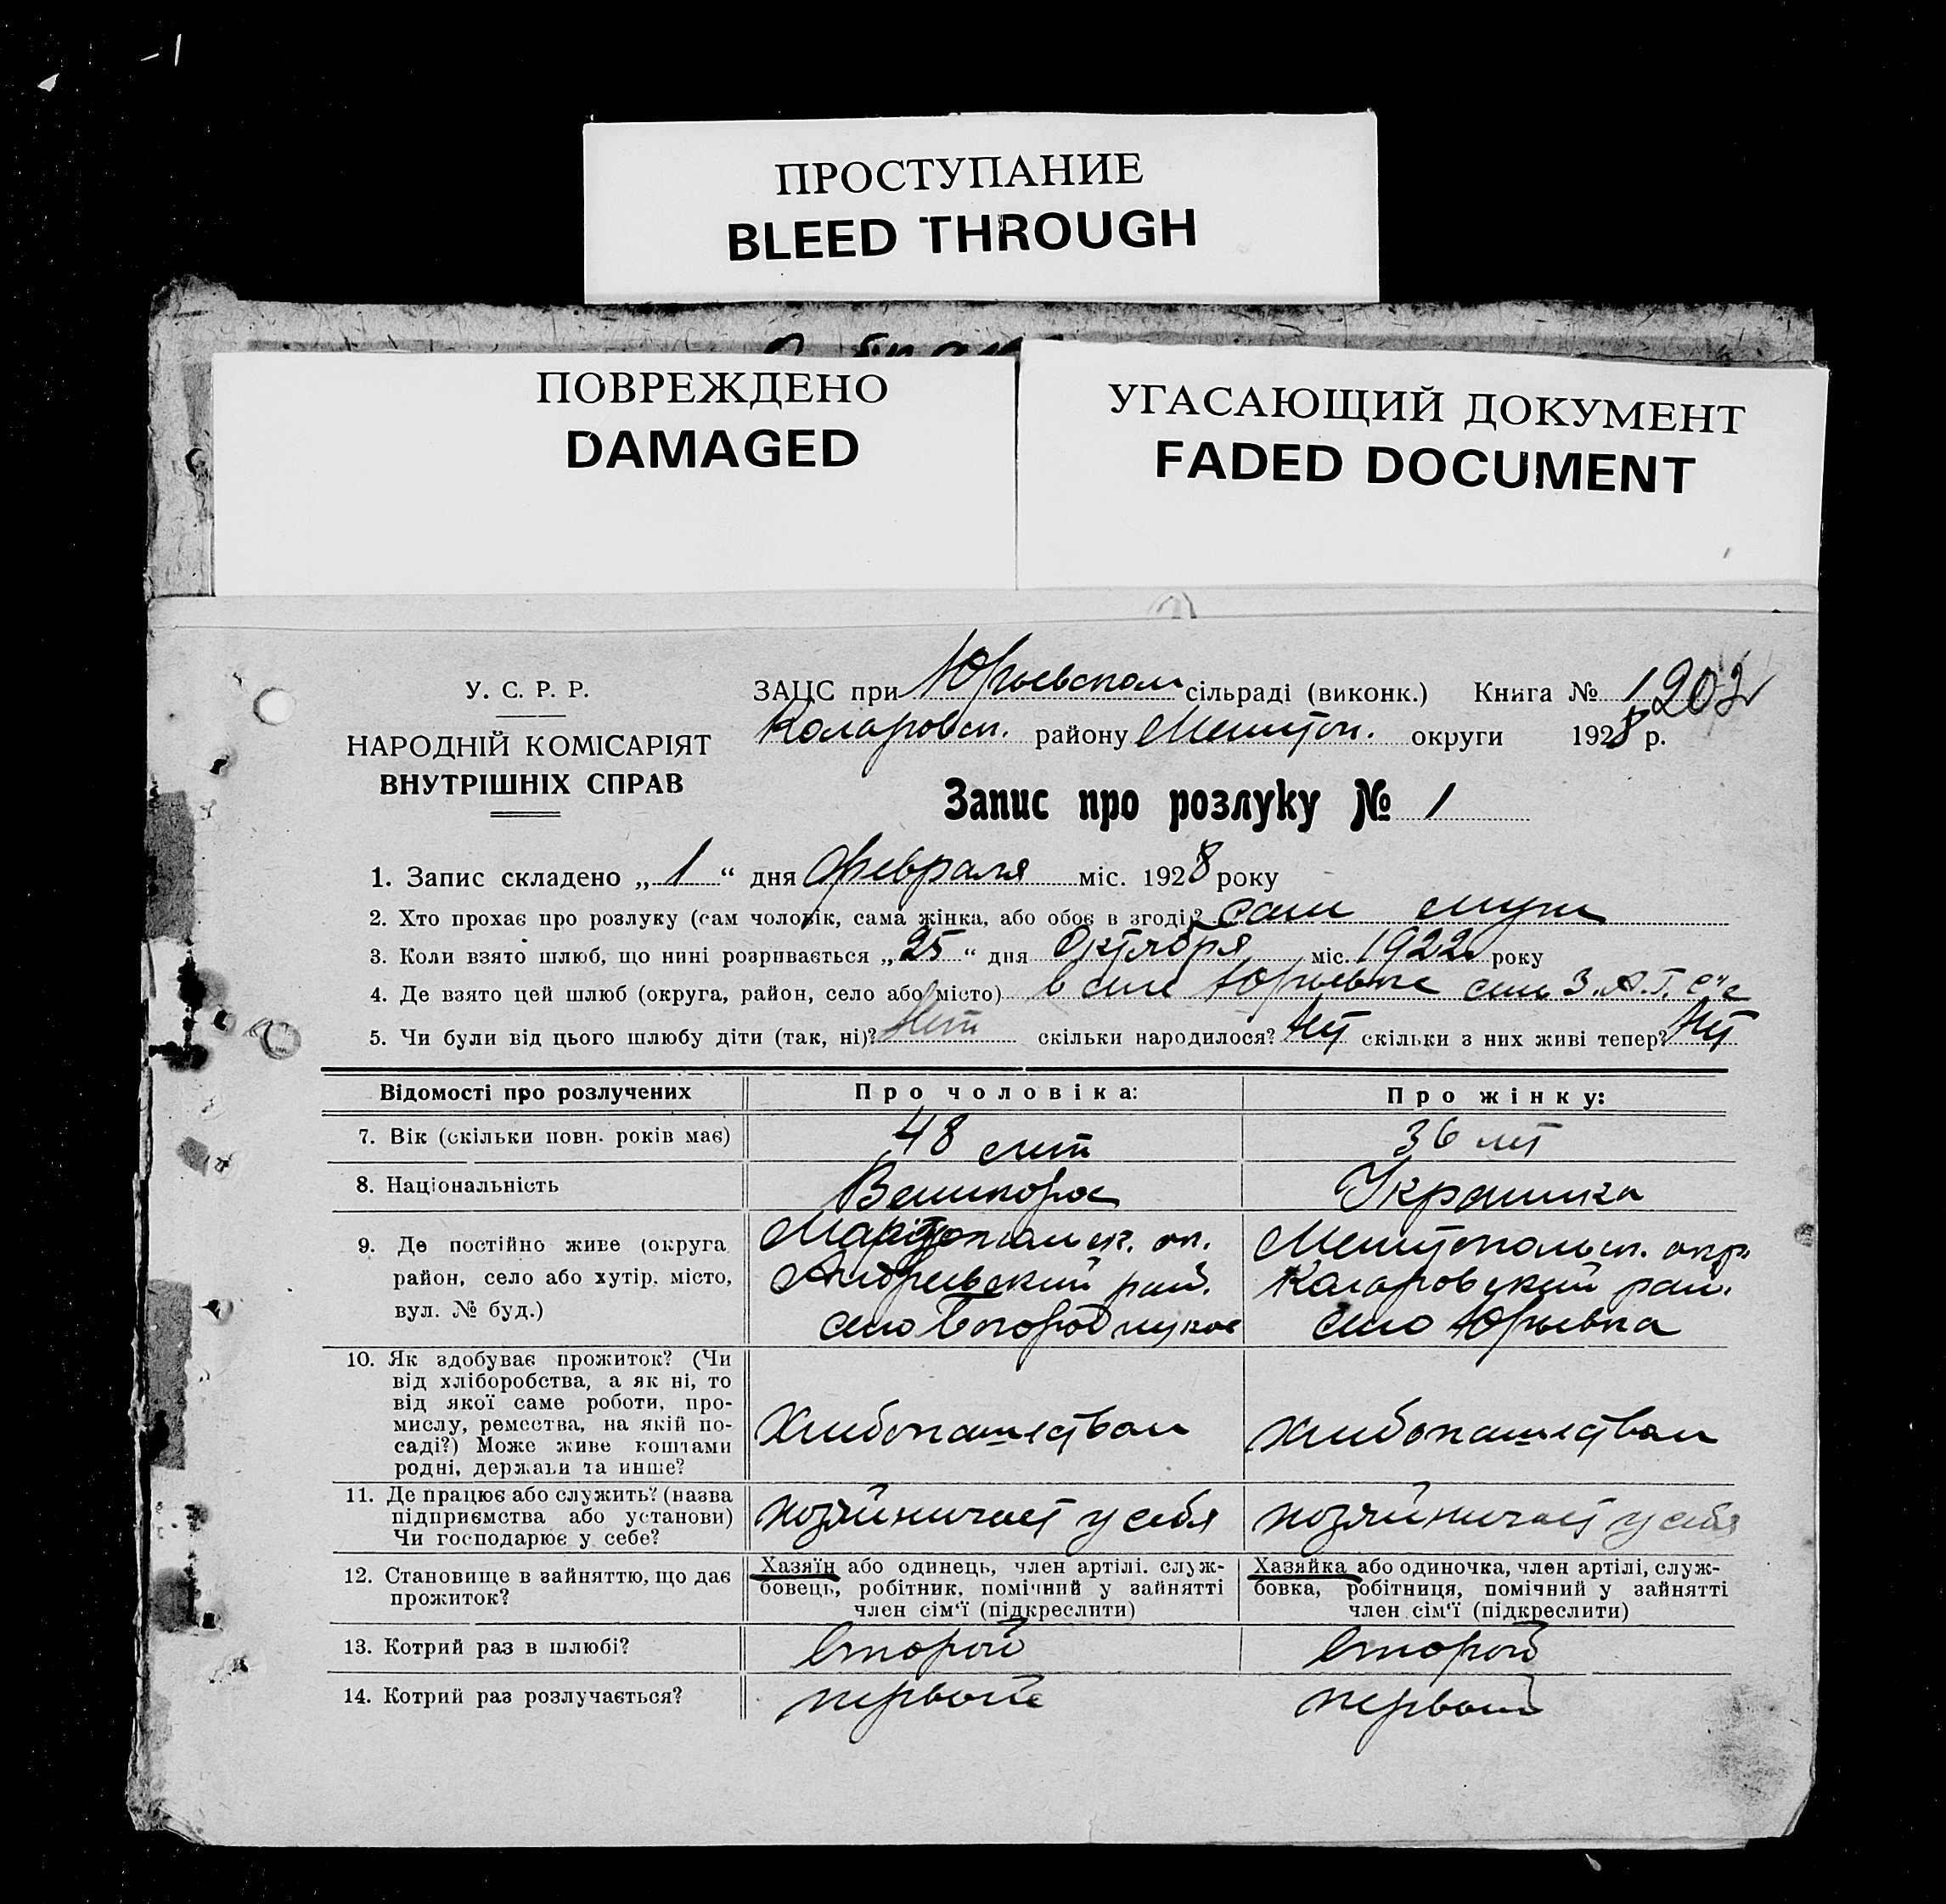 ПРОСТУПАНИЕ
BLEED THROUGH
ПОВРЕЖДЕНО
DAMAGED
УГАСАЮЩИЙ ДОКУМЕНТ
FADED DOCUMENT
У. С. Р. Р.
НАРОДНІЙ КОМІСАРІЯТ
ВНУТРІШНІХ СПРАВ
ЗАЦС при Юрьевском сільраді (виконк.) Книга № 1 202
Коларовск. району Мелитоп. округи 1928 р.
Запис про розлуку № 1
1. Запис складено „1“ дня февраля міс. 1928 року
2. Хто прохає про розлуку (сам чоловік, сама жінка, або обоє в згоді)? сам муж
3. Коли взято шлюб, що нині розривається „25“ дня Октября міс. 1922 року
4. Де взято цей шлюб (округа, район, село або місто) в селе Юрьевке З.А.Г.С
5. Чи були від цього шлюбу діти (так, ні)? Нет скільки народилося? Нет скільки з них живі тепер? Нет
Відомості про розлучених
Про чоловіка:
Про жінку:
7. Вік (скільки повн. років має)
48 лет
36 лет
8. Національність
Великорос
Украинка
9. Де постійно живе (округа
район, село або хутір, місто,
вул. № буд.)
Мариупольск. ок.
Андреевский рай.
село Богородицкое
Мелитопольск. окр.
Коларовский рай.
село Юрьевка
10. Як здобуває прожиток? (Чи
від хліборобства, а як ні, то
від якої саме роботи, про-
мислу, ремества, на якій по-
саді?) Може живе коштами
родні, держави та инше?
Хлебопашеством
хлебопашеством
11. Де працює або служить? (назва
підприємства або установи)
Чи господарює у себе?
хозяйничает у себя
хозяйничает у себя
12. Становище в зайняттю, що дає
прожиток?
Хазяїн або одинець, член артілі. служ-
бовець, робітник, помічний у зайнятті
член сім‘ї (підкреслити)
Хазяйка або одиночка, член артілі, служ-
бовка, робітниця, помічний у зайнятті
член сім‘ї (підкреслити)
13. Котрий раз в шлюбі?
второй
второй
14. Котрий раз розлучається?
первый
первый